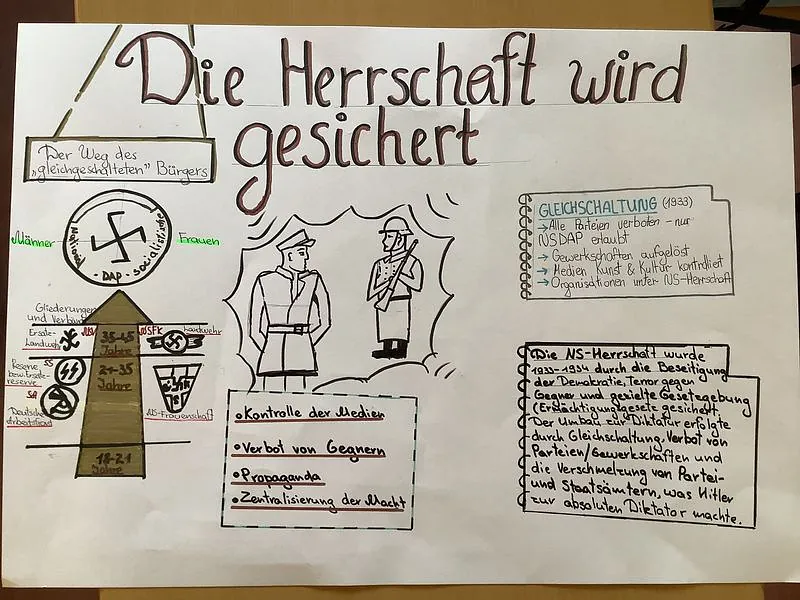 Die Herrschaft wird
gesichert
Der Weg des
„gleichgeschalteten" Bürgers
Männer
Frauen
Nationale
sozialistische
- DAP -
Gliederungen
und Verbände
Ersatz-
Landwehr
NSFK
Landwehr
35-45
Jahre
Reserve
bzw. Ersatz-
reserve
SS
21-35
Jahre
SA
Deutsche
Arbeitsfront
NS-Frauenschaft
18-21
Jahre
•Kontrolle der Medien
•Verbot von Gegnern
•Propaganda
•Zentralisierung der Macht
GLEICHSCHALTUNG (1933)
→Alle Parteien verboten - nur
NSDAP erlaubt
→ Gewerkschaften aufgelöst
→ Medien Kunst & Kultur kontrolliert
→ Organisationen unter NS-Herrschaft
Die NS-Herrschaft wurde
1933-1934 durch die Beseitigung
der Demokratie, Terror gegen
Gegner und gezielte Gesetzgebung
(Ermächtigungsgesetz gesichert,
Der Umbau zur Diktatur erfolgte
durch Gleichschaltung, Verbot von
Parteien/Gewerkschaften und
die Verschmelzung von Partei-
und Staatsämtern, was Hitler
zur absoluten Diktator machte.